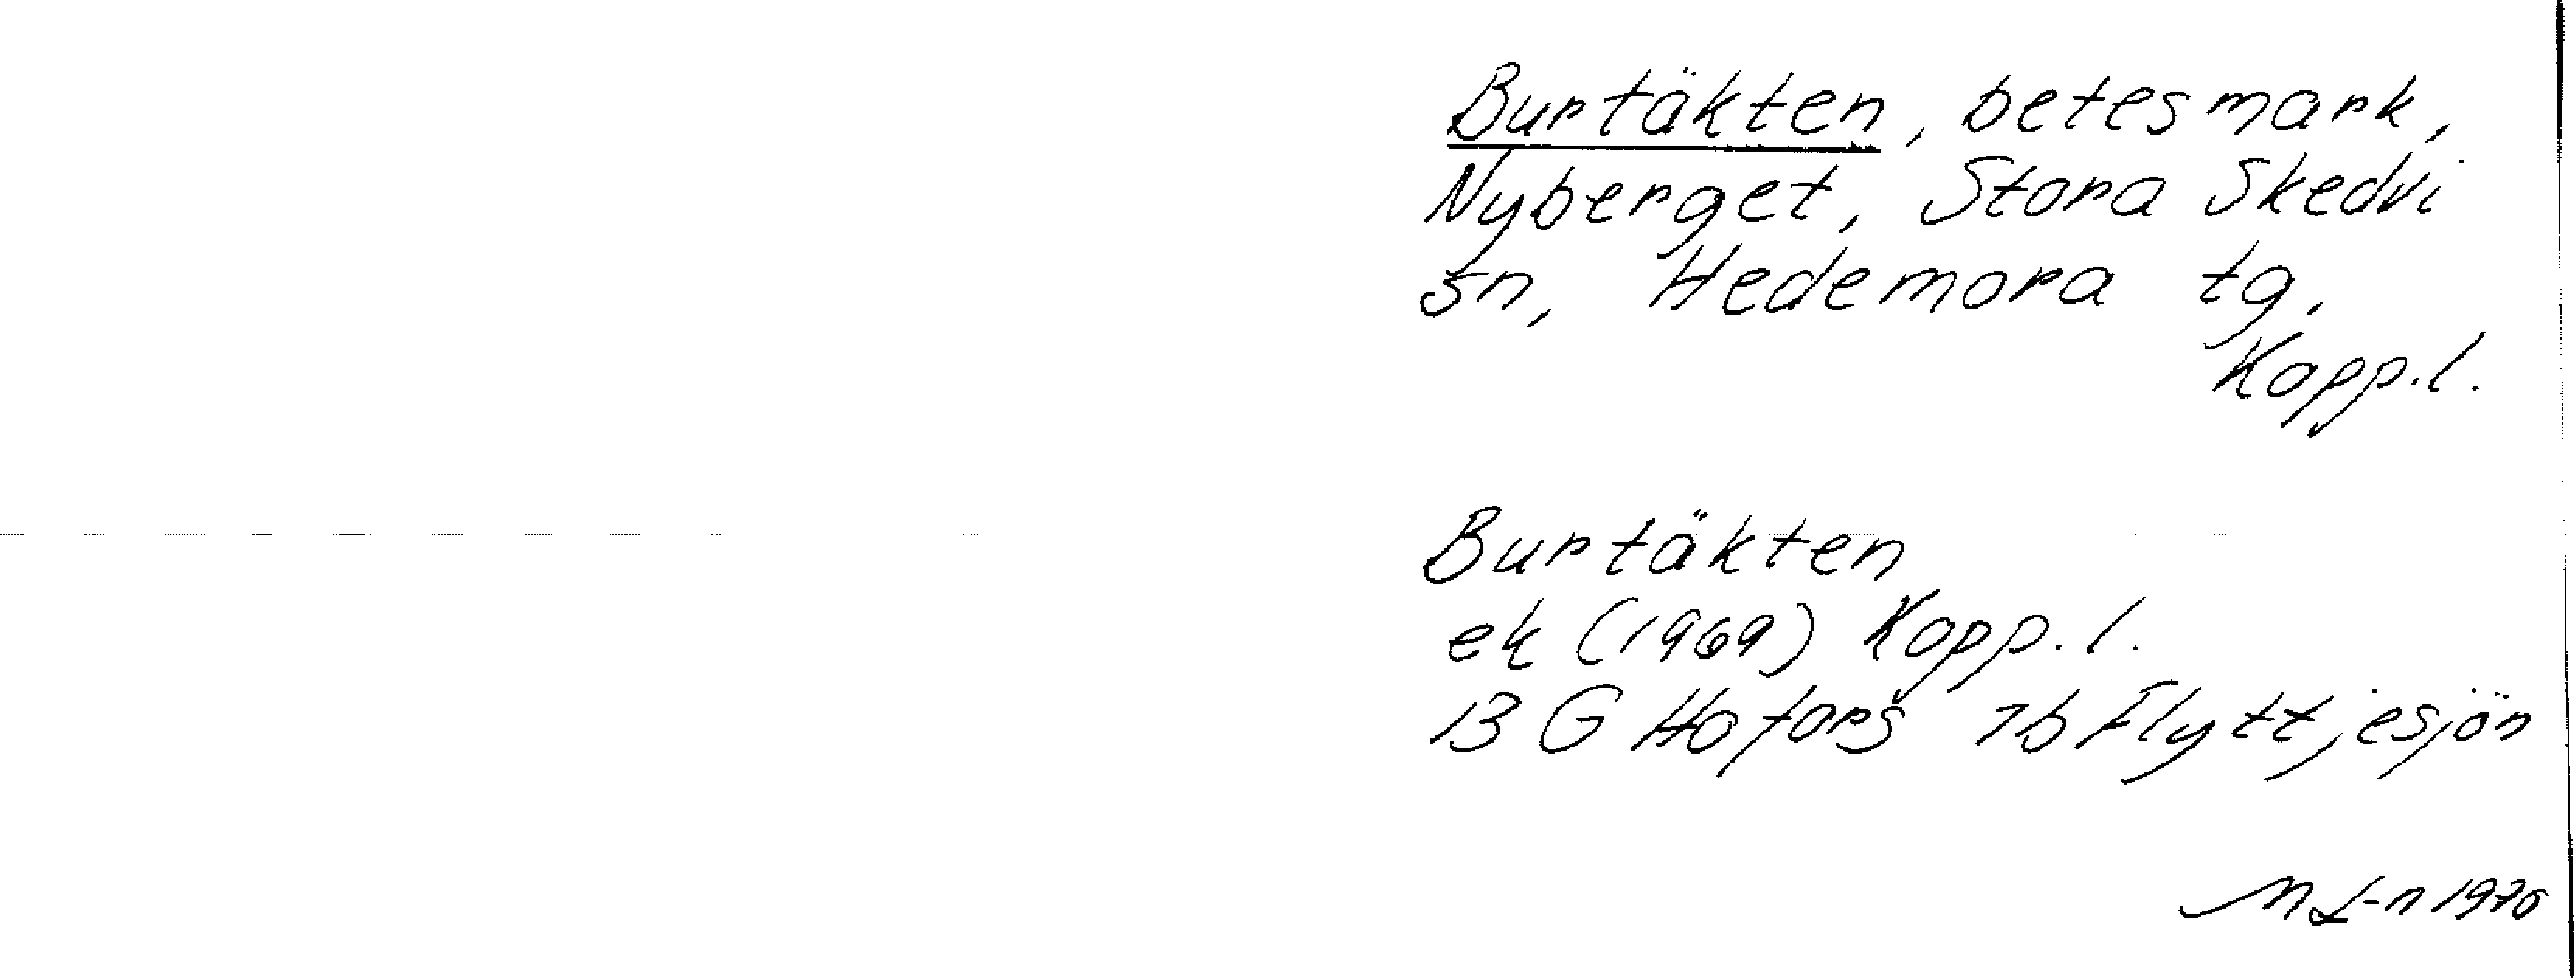 Burtäkten, betesmark,
Nyberget, Stora Skedvi
sn, Hedemora tg,
Kopp.l.
Burtäkten
ek (1969) Kopp.l.
13 G Hofors 7b Flyttjesjön
M L-n 1970